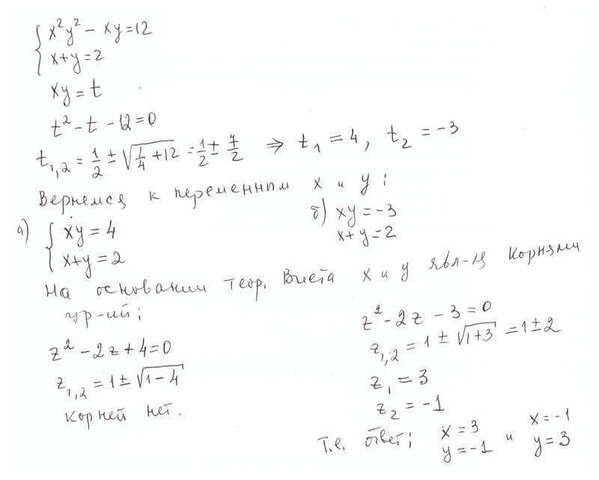 x²y² - xy = 12
x+y=2
xy = t
t² - t - 12 = 0
t₁,₂ = 1/2 ± √(1/4 + 12) = 1/2 ± 7/2 ⇒ t₁ = 4, t₂ = -3
Вернемся к переменным x и y:
а) { xy = 4
x+y = 2
б) xy = -3
x+y = 2
На основании теор. Виета x и y явл-ся корнями
ур-ий:
z² - 2z + 4 = 0
z₁,₂ = 1 ± √(1-4)
Корней нет.
z² - 2z - 3 = 0
z₁,₂ = 1 ± √(1+3) = 1 ± 2
z₁ = 3
z₂ = -1
Т.е. ответ: x = 3 и x = -1
y = -1 y = 3